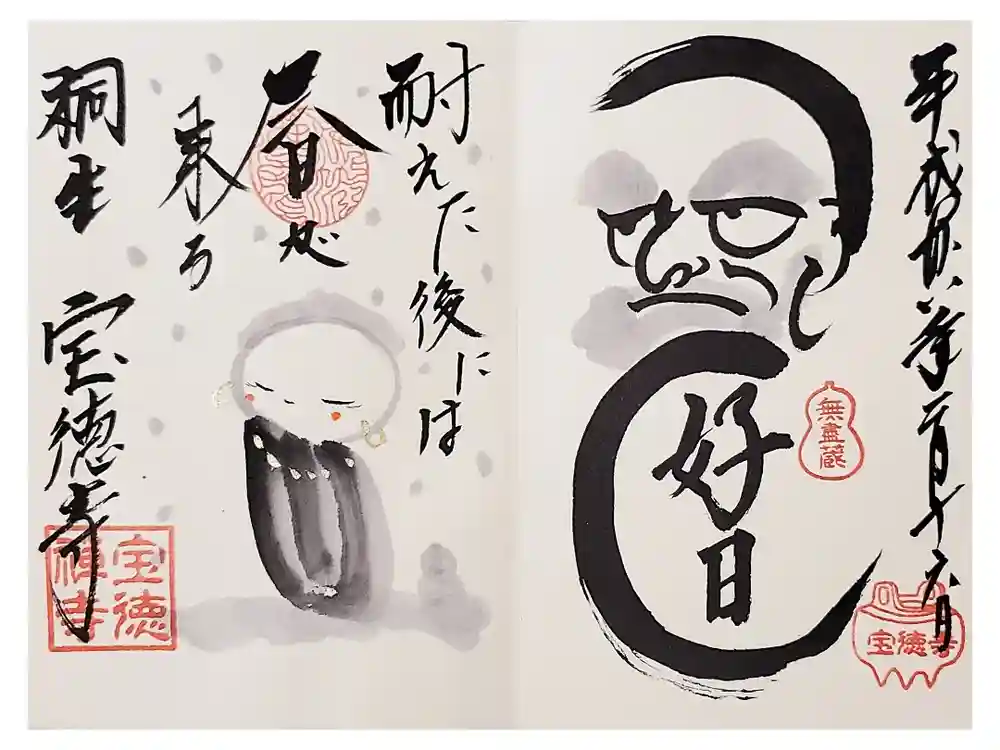 平成卅一年二月十六日
好日
無盡蔵
宝徳寺
耐えた後には
春が
来る
桐生 宝徳寺
宝徳
禅寺